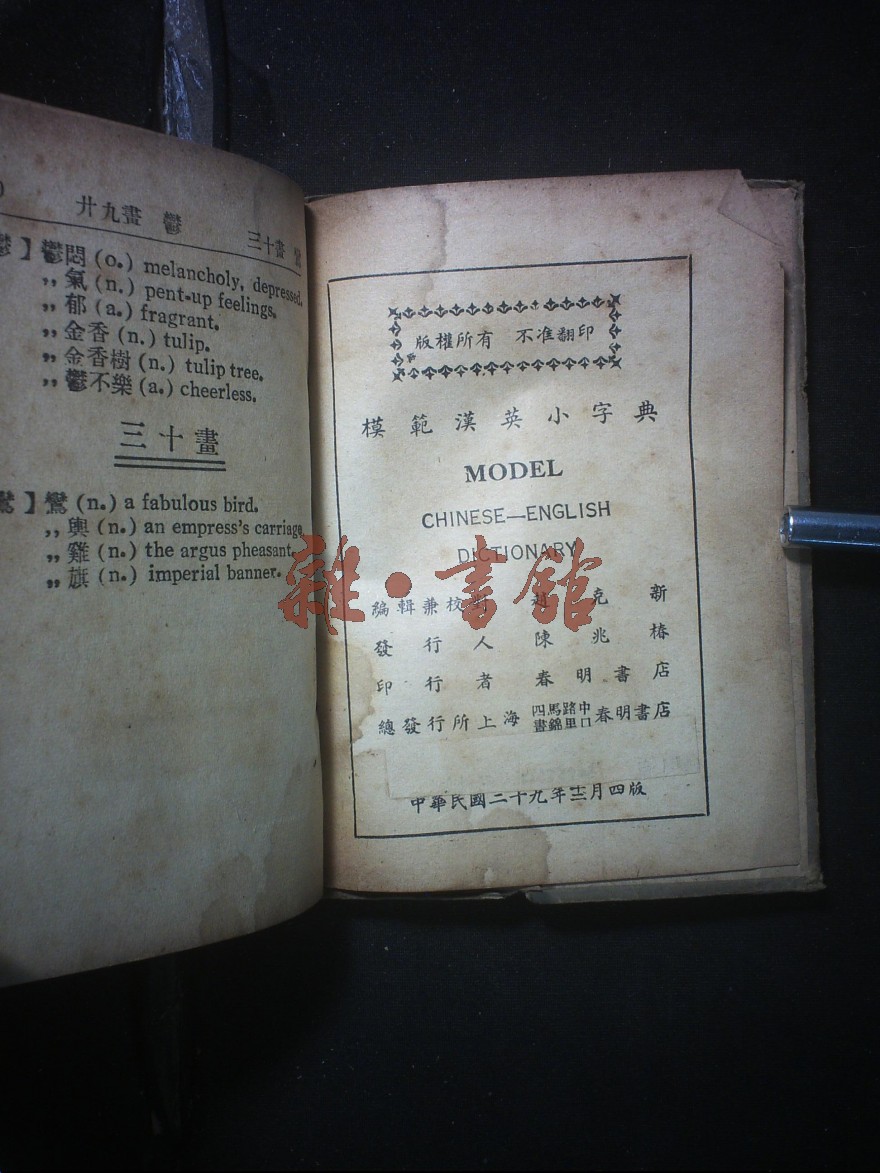 廿九畫 鬱 三十畫 鸞
鬱】鬱悶 (o.) melancholy, depressed.
,, 氣 (n.) pent-up feelings.
,, 郁 (a.) fragrant.
,, 金香 (n.) tulip.
,, 金香樹 (n.) tulip tree.
,, 鬱不樂 (a.) cheerless.
三十畫
鸞】鸞 (n.) a fabulous bird.
,, 輿 (n.) an empress's carriage
,, 雞 (n.) the argus pheasant.
,, 旗 (n.) imperial banner.
版權所有 不准翻印
模範漢英小字典
MODEL
CHINESE—ENGLISH
DICTIONARY
編輯兼校 克新
發行人 陳兆椿
印行者 春明書店
總發行所上海 四馬路中畫錦里口 春明書店
中華民國二十九年十二月四版
雜·書館